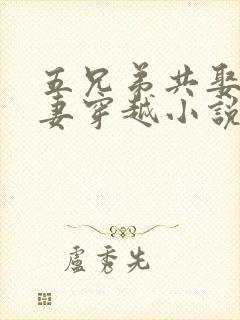 五兄弟共娶
妻穿越小說
盧秀先